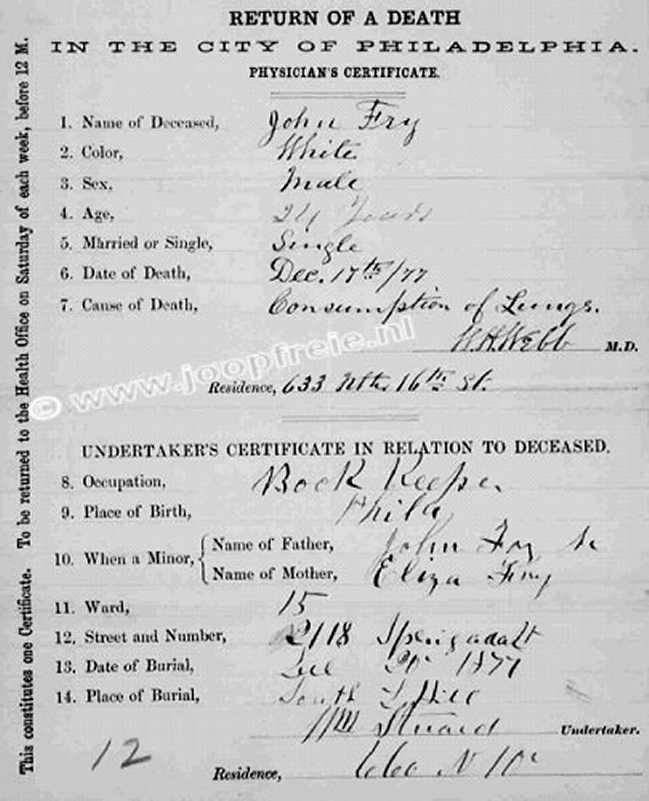 RETURN OF A DEATH
IN THE CITY OF PHILADELPHIA.
PHYSICIAN'S CERTIFICATE.
1. Name of Deceased, John Fry
2. Color, White
3. Sex, Male
4. Age, 24 Years
5. Married or Single, Single
6. Date of Death, Dec. 17th/77
7. Cause of Death, Consumption of Lungs.
W.H. Webb M.D.
Residence, 633 Nth. 16th St.
UNDERTAKER'S CERTIFICATE IN RELATION TO DECEASED.
8. Occupation, Book Keeper
9. Place of Birth, Phila
10. When a Minor,
Name of Father, John Fry
Name of Mother, Eliza Fry
11. Ward, 15
12. Street and Number, 2118
13. Date of Burial, 20 1877
14. Place of Burial, South
Wm Stuard Undertaker.
12
Residence, 660 N 10
This constitutes one Certificate. To be returned to the Health Office on Saturday of each week, before 12 M.
© www.joopfreie.nl